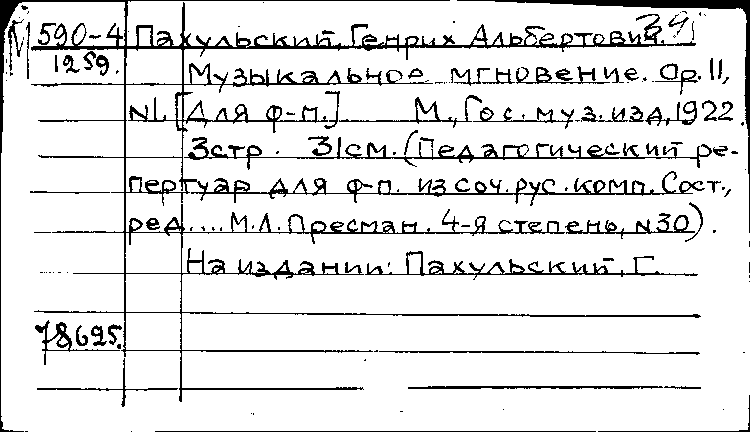 М 590-4 Пахульский, Генрих Альбертович.
1259. Музыкальное мгновение. Op. 11,
N1. [Для ф-п.] М., Гос. муз. изд, 1922.
3стр. 31см. (Педагогический ре-
пертуар для ф-п. из соч. рус. комп. Сост.,
ред.... М.Л. Пресман. 4-я степень, N30).
На издании: Пахульский, Г.
78625.